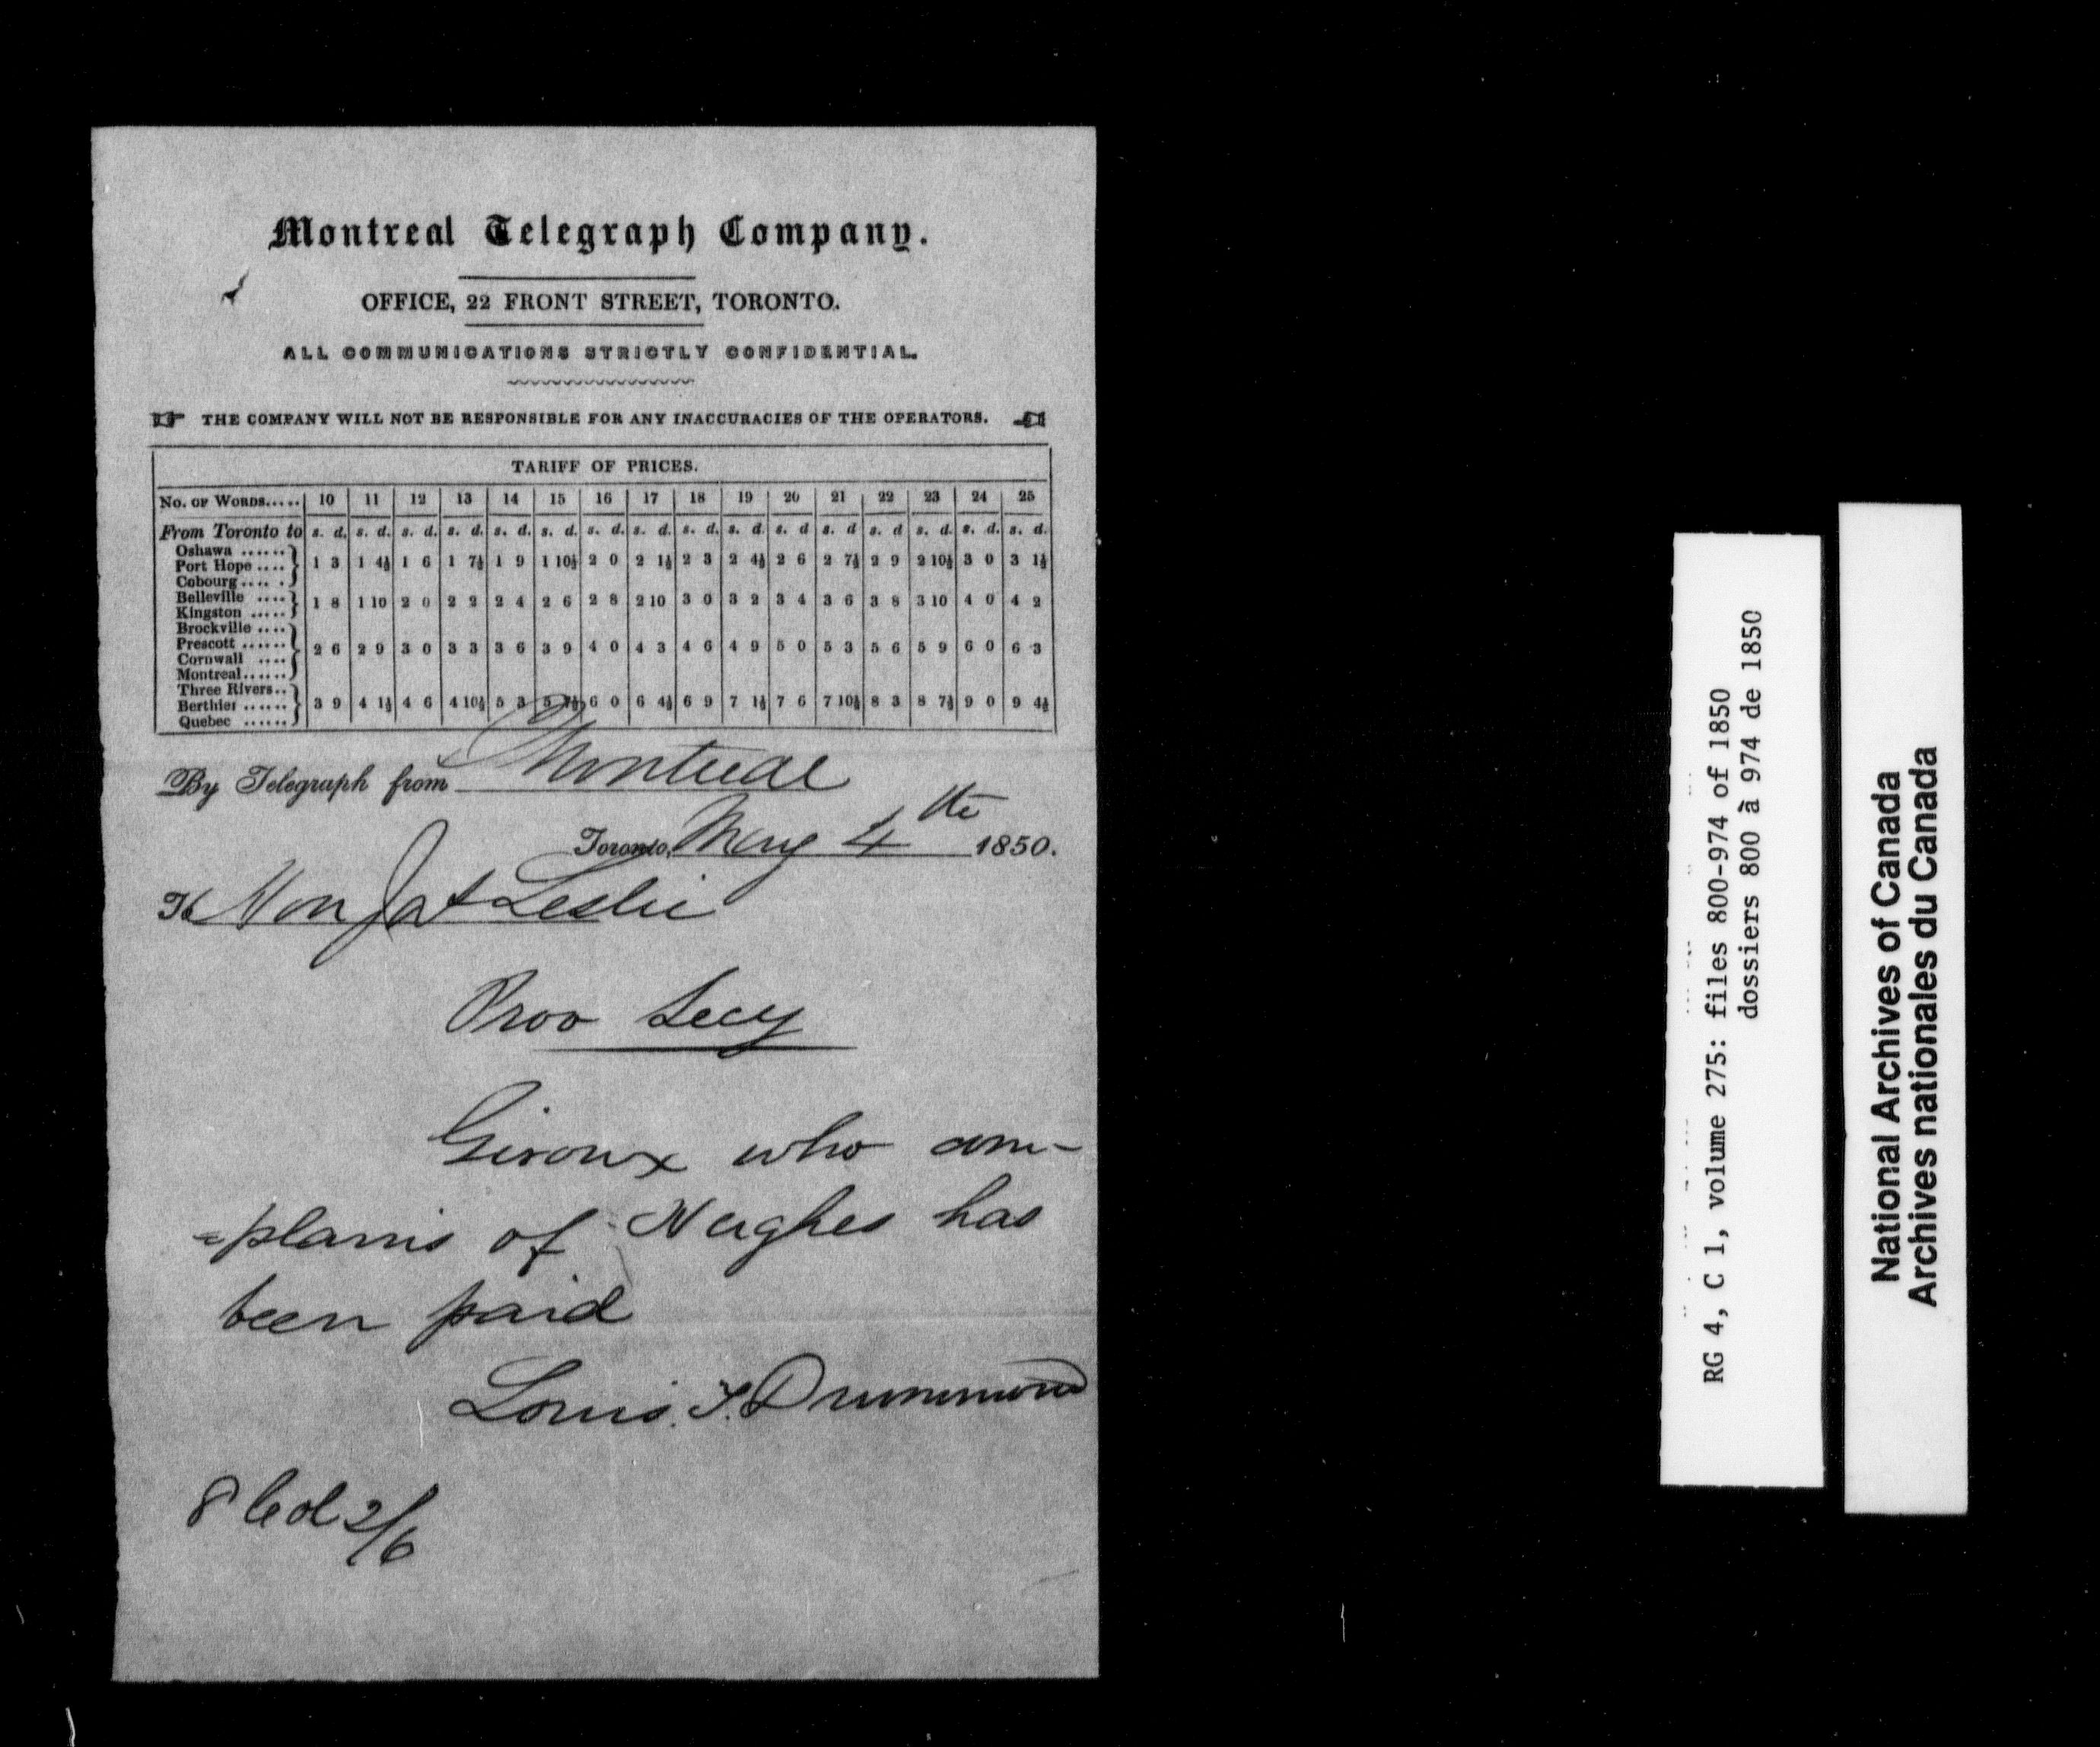 Montreal Telegraph Company.
OFFICE, 22 FRONT STREET, TORONTO.
ALL COMMUNICATIONS STRICTLY CONFIDENTIAL.
THE COMPANY WILL NOT BE RESPONSIBLE FOR ANY INACCURACIES OF THE OPERATORS.
TARIFF OF PRICES.
No. of Words..... 10 11 12 13 14 15 16 17 18 19 20 21 22 23 24 25
From Toronto to s. d. s. d. s. d. s. d. s. d. s. d. s. d. s. d. s. d. s. d. s. d s. d s. d s. d. s. d. s. d.
Oshawa ......
Port Hope .... 1 3 1 4½ 1 6 1 7½ 1 9 1 10½ 2 0 2 1½ 2 3 2 4½ 2 6 2 7½ 2 9 2 10½ 3 0 3 1½
Cobourg.... .
Belleville ....
Kingston ..... 1 8 1 10 2 0 2 2 2 4 2 6 2 8 2 10 3 0 3 2 3 4 3 6 3 8 3 10 4 0 4 2
Brockville ....
Prescott ...... 2 6 2 9 3 0 3 3 3 6 3 9 4 0 4 3 4 6 4 9 5 0 5 3 5 6 5 9 6 0 6 3
Cornwall ....
Montreal......
Three Rivers..
Berthier ...... 3 9 4 1½ 4 6 4 10½ 5 3 5 7½ 6 0 6 4½ 6 9 7 1½ 7 6 7 10½ 8 3 8 7½ 9 0 9 4½
Quebec ......
By Telegraph from Montreal
Toronto, May 4th 1850.
To Hon Jas Leslie
Prov Secy
Giroux who com-
=plains of Hughes has
been paid
Louis. T. Drummond
8 Col 2/6
RG 4, C 1, volume 275: files 800-974 of 1850
dossiers 800 à 974 de 1850
National Archives of Canada
Archives nationales du Canada